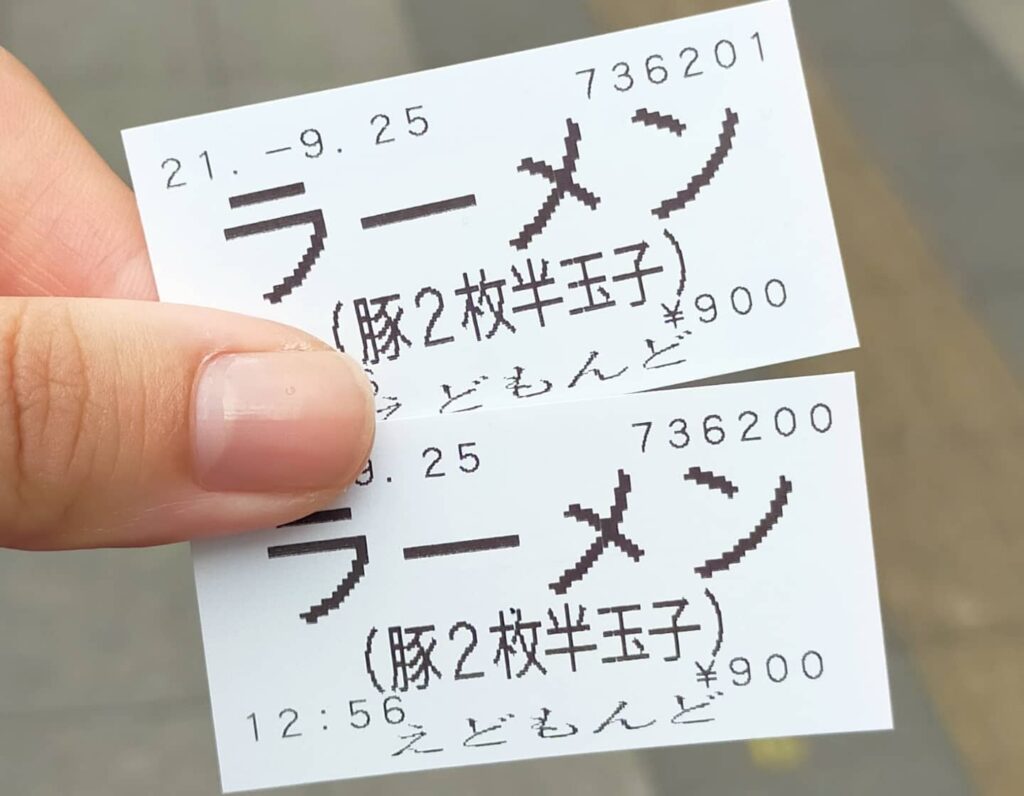 21. -9. 25 736201
ラーメン
(豚2枚半玉子)
¥900
えどもんど
9. 25 736200
ラーメン
(豚2枚半玉子)
¥900
12:56 えどもんど